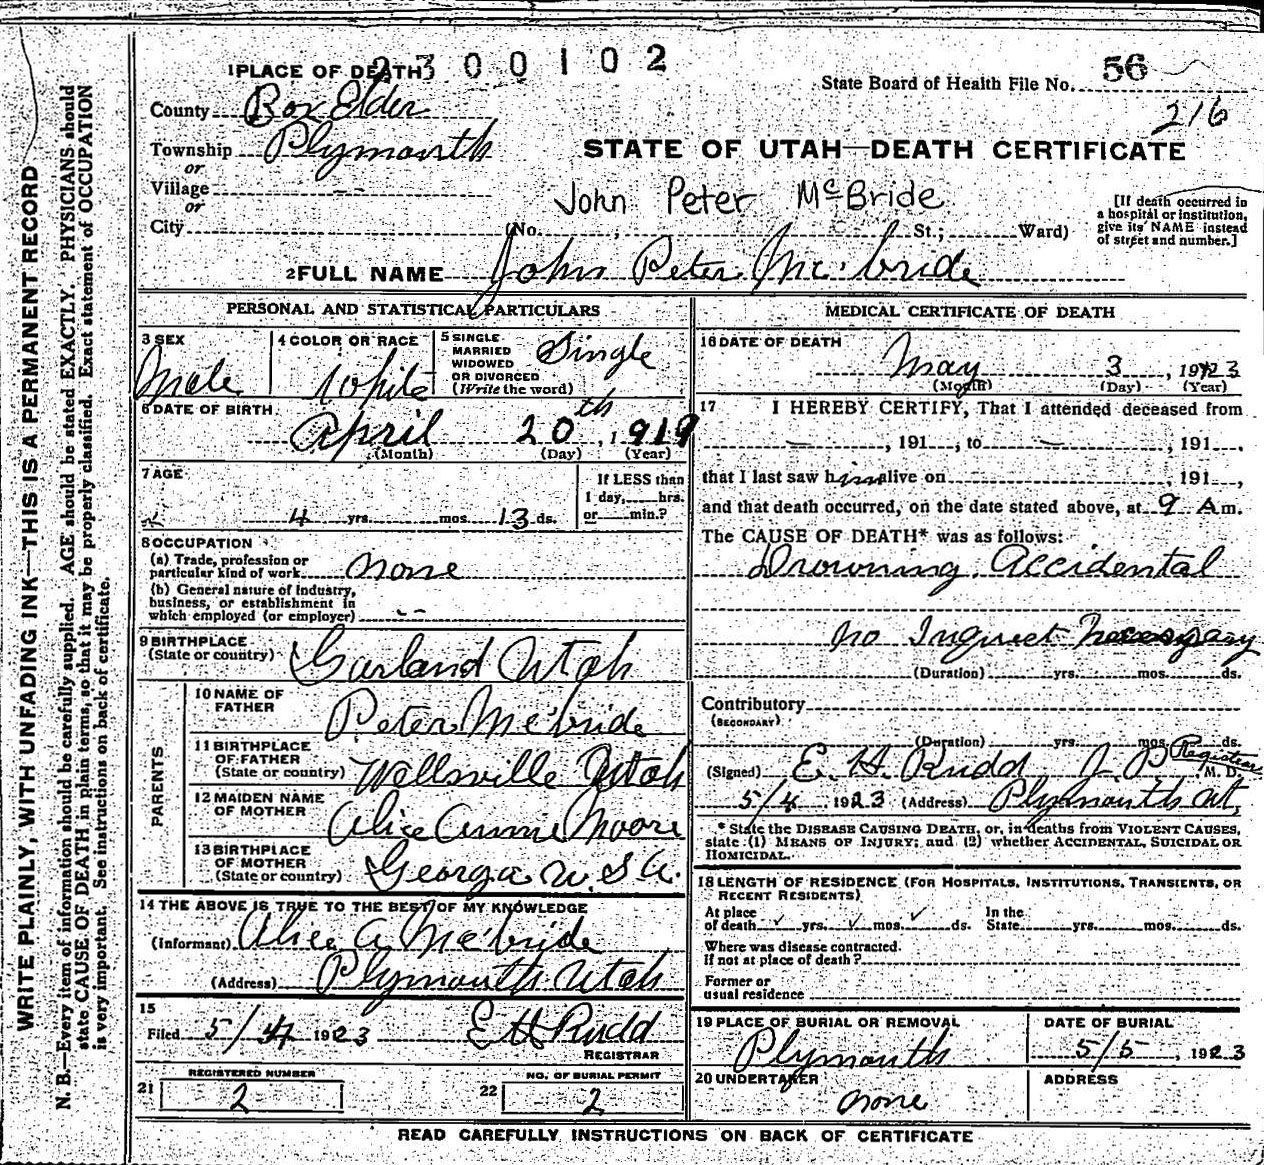 1 PLACE OF DEATH
2300102
State Board of Health File No. 56
216
County Box Elder
Township Plymouth
or
Village --
or
City
STATE OF UTAH—DEATH CERTIFICATE
John Peter McBride
(No. ; St.; Ward)
[If death occurred in
a hospital or institution,
give its NAME instead
of street and number.]
2 FULL NAME John Peter Mc'bride
PERSONAL AND STATISTICAL PARTICULARS
3 SEX
Male
4 COLOR OR RACE
White
5 SINGLE
MARRIED
WIDOWED
OR DIVORCED
(Write the word)
Single
6 DATE OF BIRTH
April 20th, 1919
(Month) (Day) (Year)
7 AGE
4 yrs. mos. 13 ds.
If LESS than
1 day, hrs.
or min.?
8 OCCUPATION
(a) Trade, profession or
particular kind of work none
(b) General nature of industry,
business, or establishment in
which employed (or employer) --
9 BIRTHPLACE
(State or country) Garland Utah
PARENTS
10 NAME OF
FATHER
Peter Mc'bride
11 BIRTHPLACE
OF FATHER
(State or country) Wellsville Utah
12 MAIDEN NAME
OF MOTHER
Alice Annie Moore
13 BIRTHPLACE
OF MOTHER
(State or country) Georga U.S A.
14 THE ABOVE IS TRUE TO THE BEST OF MY KNOWLEDGE
(Informant) Alice A. Mc'bride
(Address) Plymouth Utah
15
Filed 5/4 1923 E H Rudd
REGISTRAR
21 REGISTERED NUMBER
2
22 NO. OF BURIAL PERMIT
2
MEDICAL CERTIFICATE OF DEATH
16 DATE OF DEATH
May 3, 1923
(Month) (Day) (Year)
17 I HEREBY CERTIFY, That I attended deceased from
— , 191 , to — , 191 ,
that I last saw him alive on , 191 ,
and that death occurred, on the date stated above, at 9 A m.
The CAUSE OF DEATH* was as follows:
Drowning, Accidental
no Inquest Necessary
(Duration) yrs. mos. ds.
Contributory
(SECONDARY)
(Duration) yrs. mos. ds.
(Signed) E. H. Rudd J. P. Registrar M. D.
5/4 1923 (Address) Plymouth Ut,
* State the DISEASE CAUSING DEATH, or, in deaths from VIOLENT CAUSES,
state (1) MEANS OF INJURY; and (2) whether ACCIDENTAL, SUICIDAL OR
HOMICIDAL.
18 LENGTH OF RESIDENCE (FOR HOSPITALS, INSTITUTIONS, TRANSIENTS, OR
RECENT RESIDENTS)
At place
of death yrs. mos. ds.
In the
State yrs. mos. ds.
Where was disease contracted.
If not at place of death?
Former or
usual residence
19 PLACE OF BURIAL OR REMOVAL
Plymouth
DATE OF BURIAL
5/5, 1923
20 UNDERTAKER
none
ADDRESS
READ CAREFULLY INSTRUCTIONS ON BACK OF CERTIFICATE
WRITE PLAINLY, WITH UNFADING INK—THIS IS A PERMANENT RECORD
N. B.—Every item of information should be carefully supplied. AGE should be stated EXACTLY. PHYSICIANS should
state CAUSE OF DEATH in plain terms, so that it may be properly classified. Exact statement of OCCUPATION
is very important. See instructions on back of certificate.